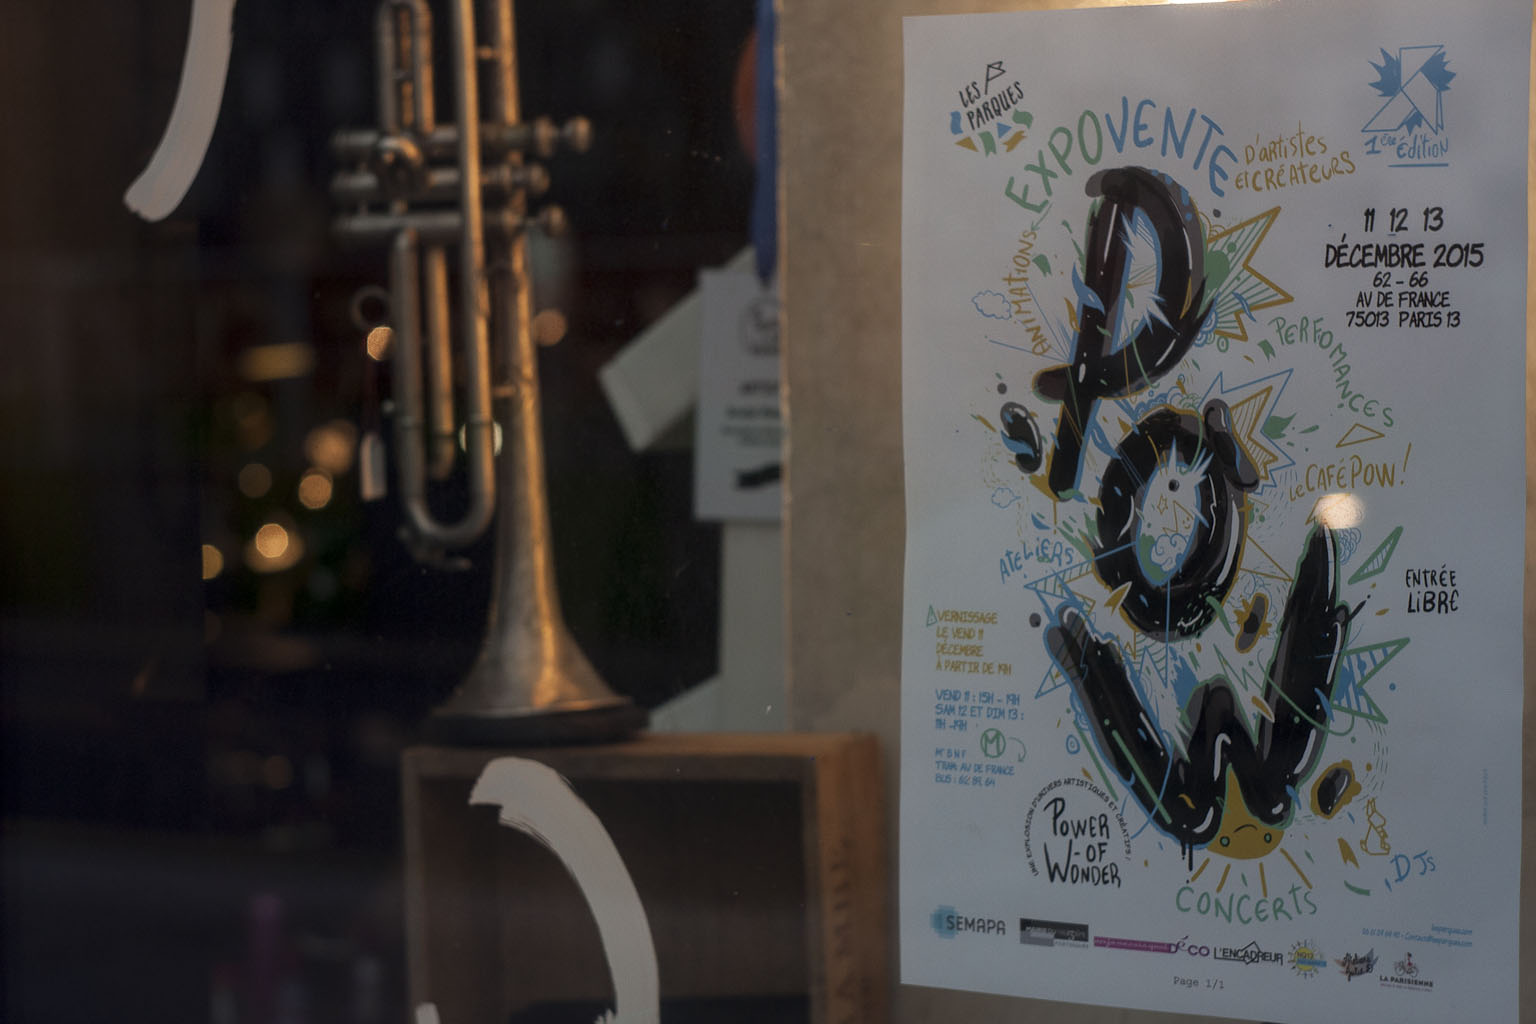 LES
PARQUES
EXPOVENTE
D'ARTISTES
ET CRÉATEURS
1ère édition
11 12 13
DÉCEMBRE 2015
62 - 66
AV DE FRANCE
75013 PARIS 13
ANIMATIONS
POW
PERFOMANCES
LE CAFÉ POW!
ATELIERS
ENTRÉE
LIBRE
VERNISSAGE
LE VEND 11
DÉCEMBRE
À PARTIR DE 19H
VEND 11 : 15H - 19H
SAM 12 ET DIM 13 :
11H - 19H
M
M° BNF
TRAM: AV DE FRANCE
BUS : 62 89 64
UNE EXPLOSION D'UNIVERS ARTISTIQUES ET CRÉATIFS!
POWER
-OF
WONDER
CONCERTS
DJs
SEMAPA
DÉCO
L'ENCADREUR
LA PARISIENNE
Page 1/1